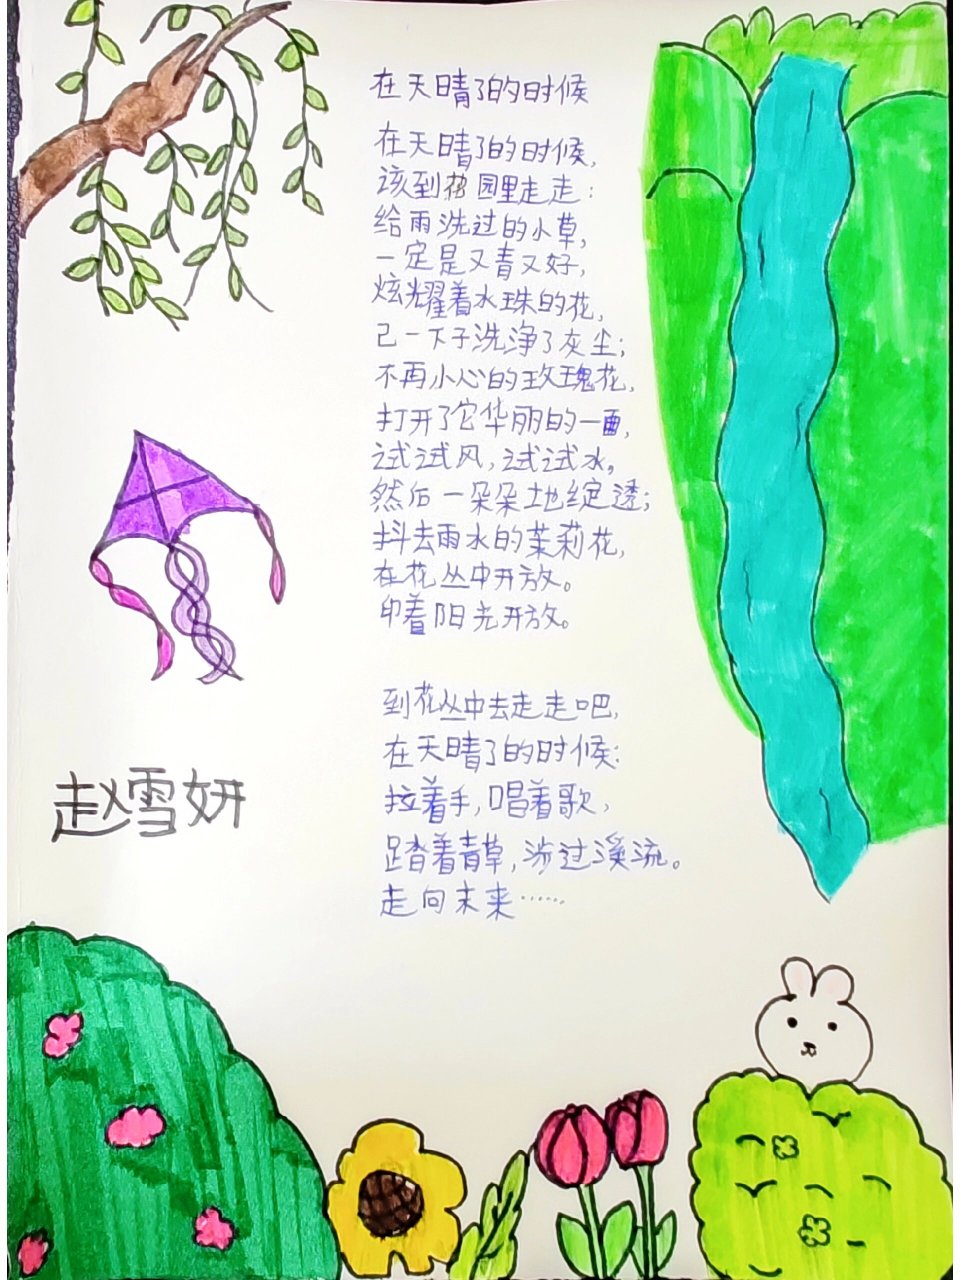 在天晴了的时候
在天晴了的时候，
该到花园里走走：
给雨洗过的小草，
一定是又青又好，
炫耀着水珠的花，
已一下子洗净了灰尘；
不再小心的玫瑰花，
打开了它华丽的一面，
试试风，试试水。
然后一朵朵地绽透；
抖去雨水的茉莉花，
在花丛中开放。
印着阳光开放。
到花丛中去走走吧，
在天晴了的时候：
拉着手，唱着歌，
踏着青草，涉过溪流。
走向未来……
赵雪妍